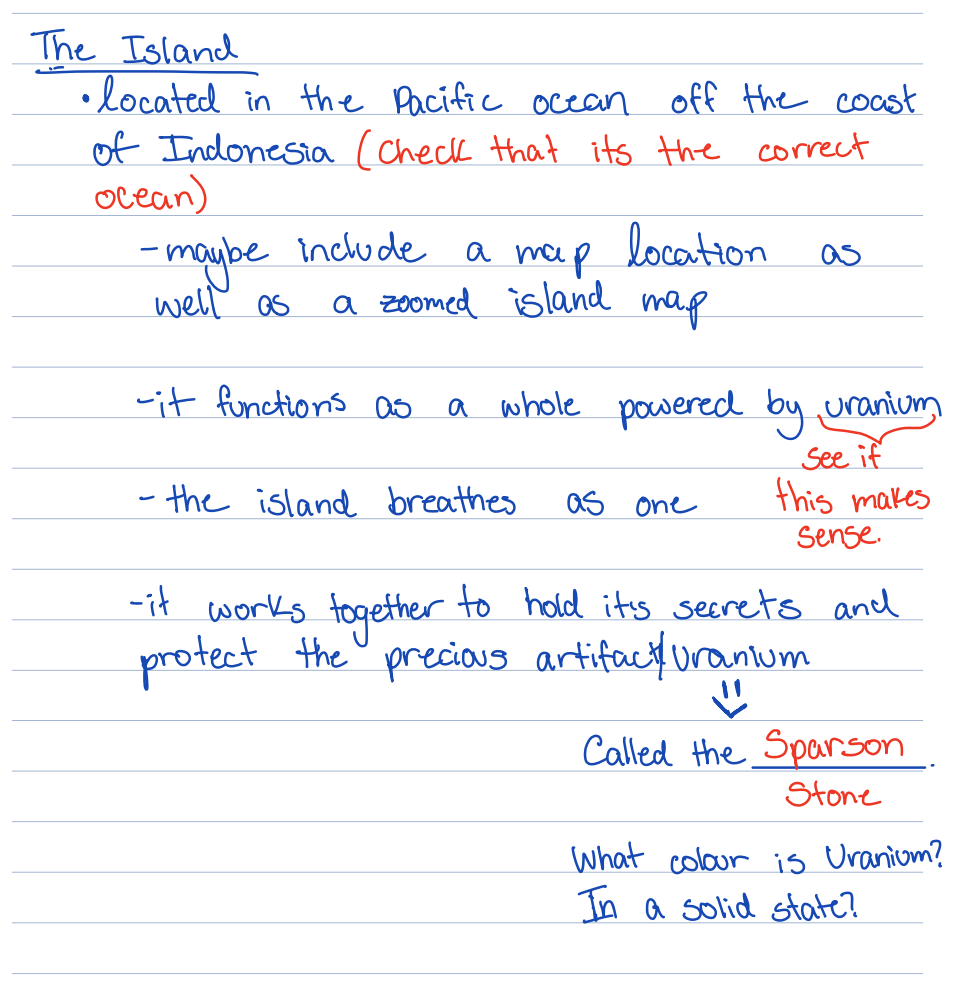 The Island
• located in the Pacific ocean off the coast
of Indonesia (check that its the correct
ocean)
- maybe include a map location as
well as a zoomed island map
- it functions as a whole powered by uranium
see if
- the island breathes as one this makes
sense.
- it works together to hold it's secrets and
protect the precious artifact/Uranium
⇓
Called the Sparson.
Stone
What colour is Uranium?
In a solid state?